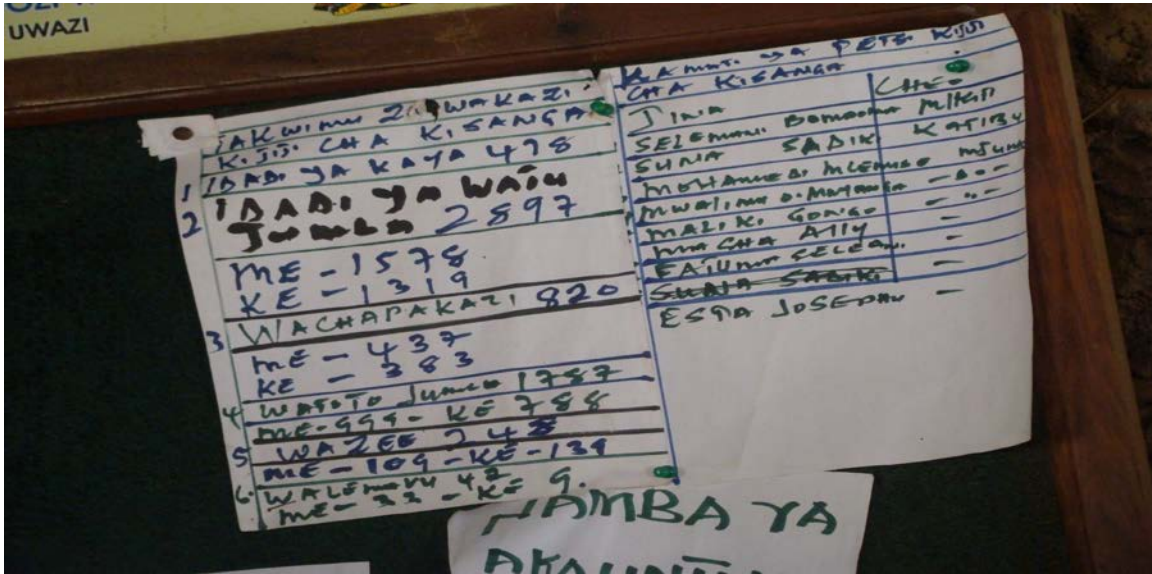 UWAZI
TAKWIMU WAKAZI
KIJIJI CHA KISANGA
1 IDADI YA KAYA 478
2 IDADI YA WATU
JUMLA 2897
ME - 1578
KE - 1319
3 WACHAPAKAZI 820
ME - 437
KE - 383
4 WATOTO JUMLA 1787
ME - 999 - KE 788
5 WAZEE 248
ME - 109 - KE - 139
6. WALEMAVU 42
ME - 33 - KE 9.
KAMATI YA PETS KIJIJI
CHA KISANGA
JINA CHEO
SELEMANI M/KITI
SUNA SADIKI KATIBU
MOHAMEDI MLEMUGE MJUMBE
MWALIMU
MALIKI
MACHA ALLY -
FATUMA SELEMANI -
SUNA SADIKI
ESTA JOSEPHU -
NAMBA YA